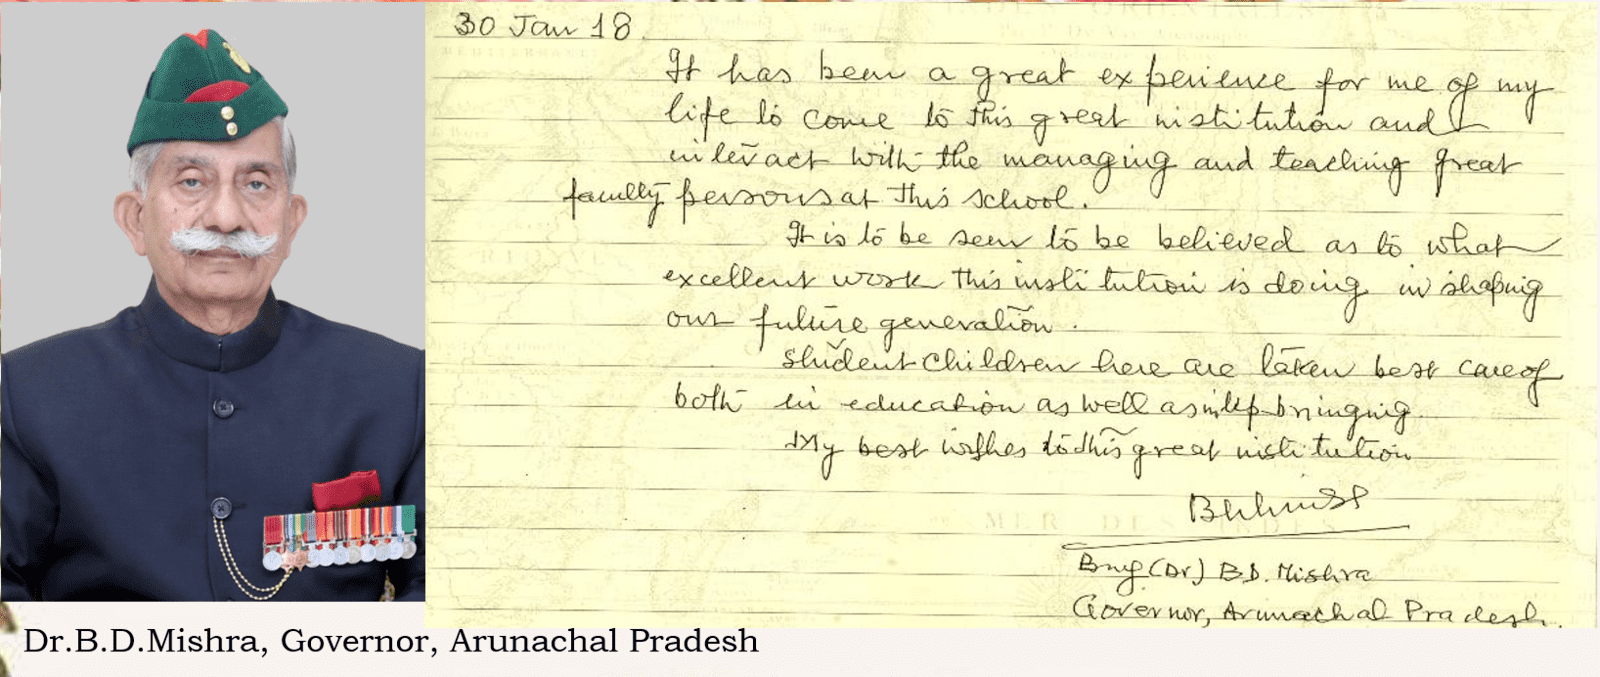 30 Jan 18
It has been a great experience for me of my
life to come to this great institution and
interact with the managing and teaching great
faculty persons at this school.
It is to be seen to be believed as to what
excellent work this institution is doing in shaping
our future generation.
Student children here are taken best care of
both in education as well as in up-bringing
My best wishes to this great institution
Brig (Dr) B.D. Mishra
Governor, Arunachal Pradesh.
Dr.B.D.Mishra, Governor, Arunachal Pradesh